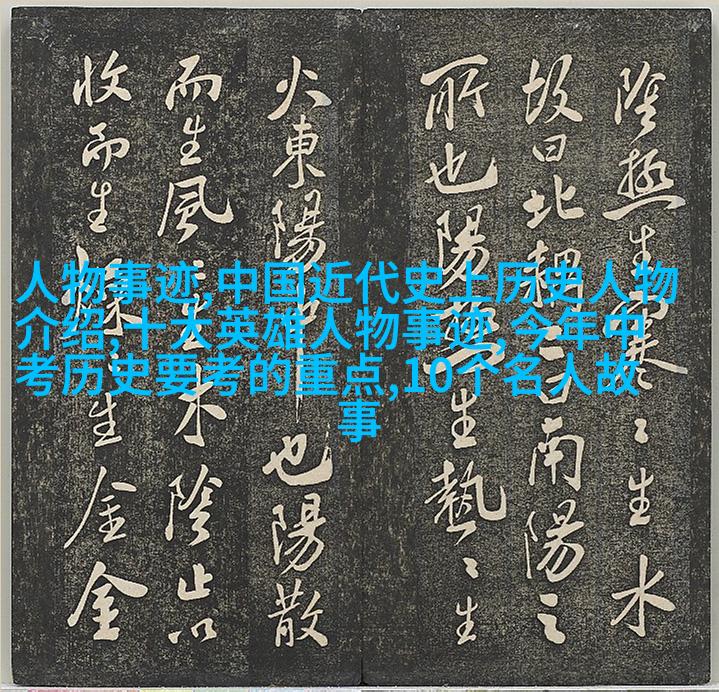 陰極生寒〻生水
故曰北南陽之
所也陽極生熱〻生
火東陽也陽散
而生風〻生木陰止以
收而生燥〻生金金
人物事迹,中国近代史上历史人物
介绍,十大英雄人物事迹,今年中
考历史要考的重点,10个名人故
事